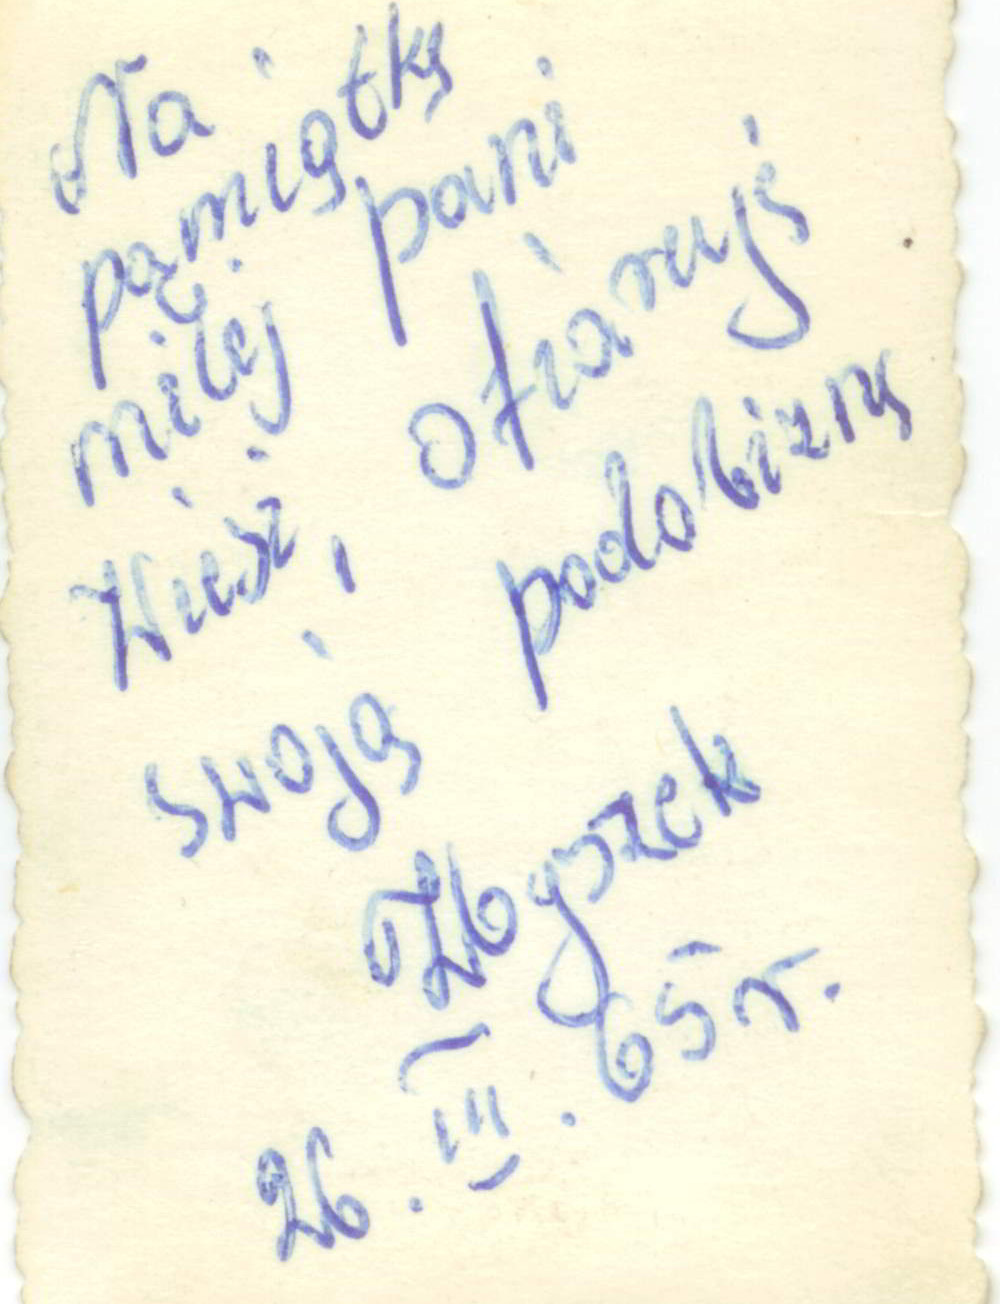 Na pamiątkę
miłej pani
Zwiesi, ofiaruję
swoją podobiznę
Zbyszek
26.III.65 r.